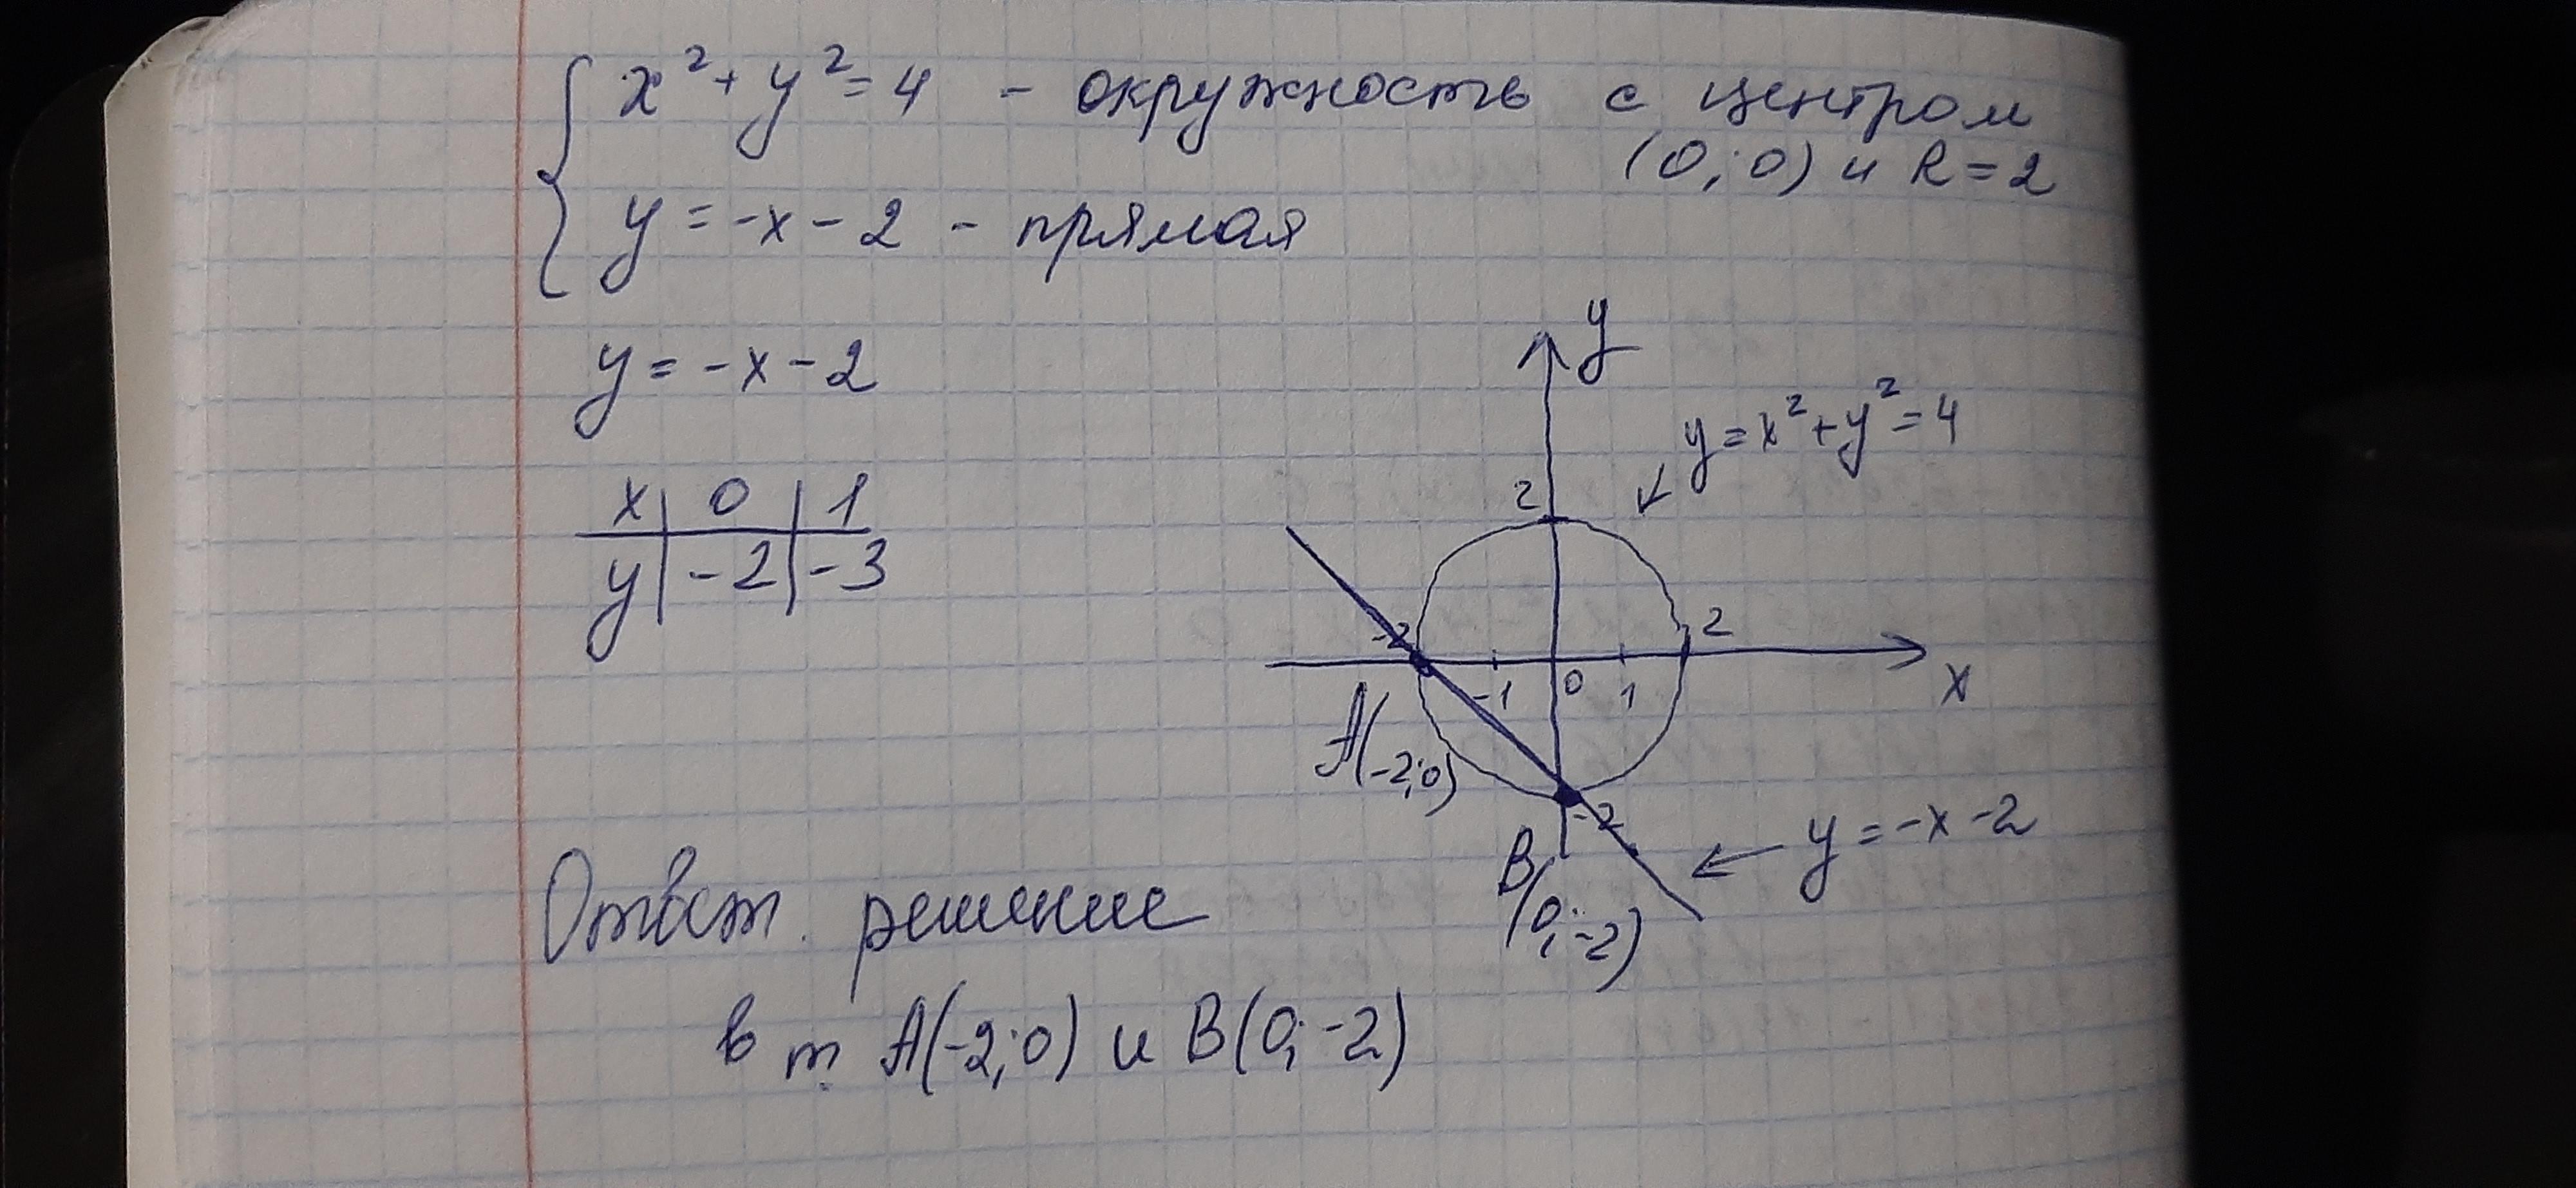 x² + y² = 4 - окружность с центром
(0; 0) и R = 2
y = -x - 2 - прямая
y = -x - 2
x | 0 | 1
y | -2 | -3
y
y = x² + y² = 4
2
-2
2
-1
0
1
x
A(-2; 0)
-2
y = -x - 2
B(0; -2)
Ответ. решение
в т. A(-2; 0) и B(0; -2)